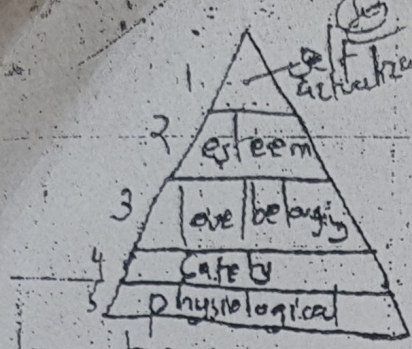 1
self
actualiza
2
esteem
3
love belonging
4
Safety
5
physiological